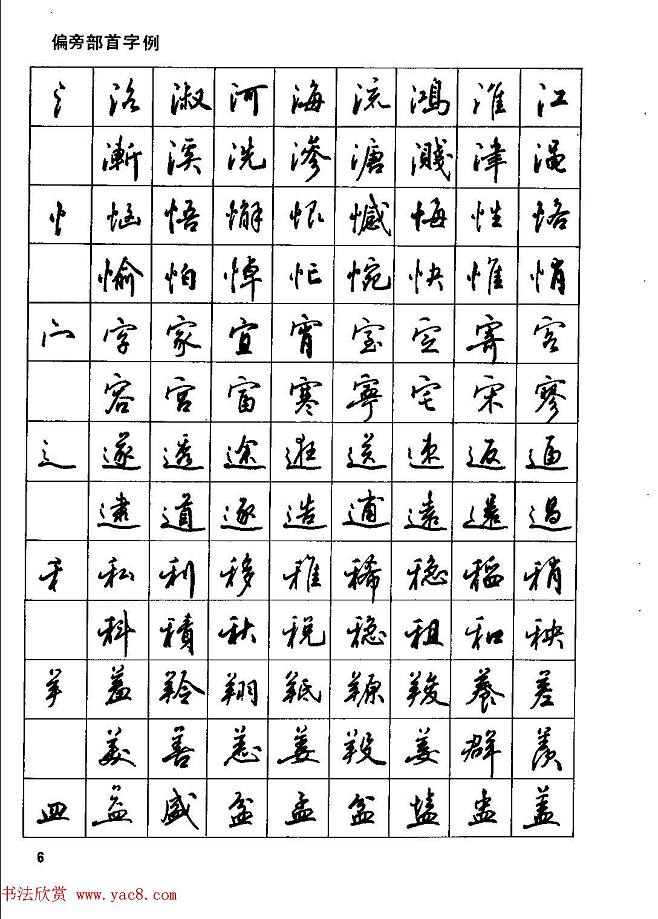 偏旁部首字例
氵 洛 淑 河 海 流 鸿 淮 江
渐 溪 洗 渗 溏 溅 津 渑
忄 悟 懈 恨 憾 悔 性 恪
愉 怕 悼 忙 惋 快 惟 悄
宀 字 家 宜 宵 室 定 寄 客
容 宫 富 寒 寧 宅 宋 寥
辶 遂 透 途 逛 送 速 返 逼
逮 道 逐 造 逋 遠 還 過
禾 私 利 移 稚 稀 稳 稻 稍
科 積 秋 税 稳 租 和 秧
羊 羔 羚 翔 羝 羱 羧 養 差
美 善 恙 姜 羖 姜 群 羡
皿 益 盛 盆 孟 盆 盐 盅 盖
6
书法欣赏 www.yac8.com